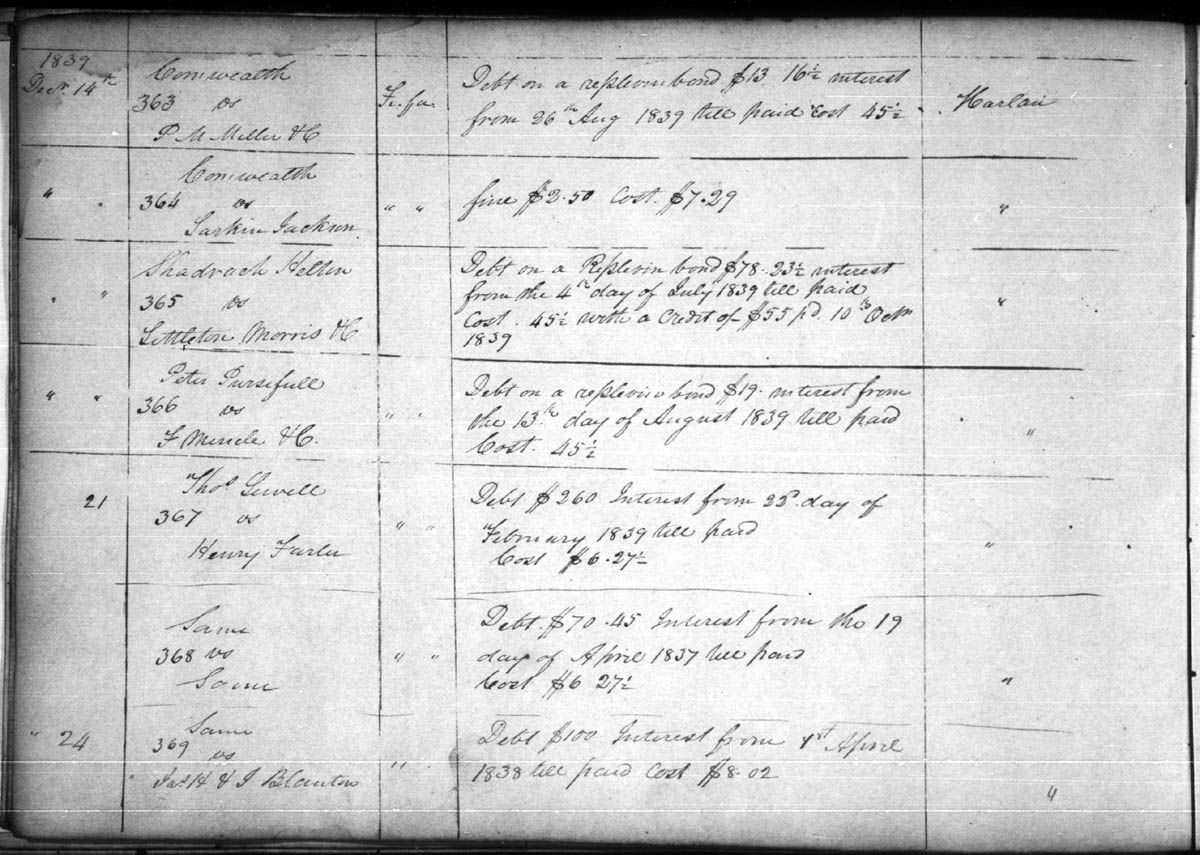 1839
Decr 14th Comwealth
363 vs
P. M Miller &C
Fi. fa.
Debt on a replevin bond $13 16½ interest
from 26th Aug 1839 till paid Cost 45½
Harlan
" "
Comwealth
364 vs
Larkin Jackson
" "
fine $2.50 Cost. $7.29
"
" "
Shadrach Helton
365 vs
Littleton Morris &C
Debt on a Replevin bond $78.23½ interest
from the 4th day of July 1839 till paid
Cost. 45½ with a Credit of $55 pd. 10th Octr
1839
"
" "
Peter Pursifull
366 vs
F Miracle &C.
" "
Debt on a replevin bond $19. interest from
the 13th day of August 1839 till paid
Cost. 45½
"
21
Thos Sewell
367 vs
Henry Farler
" "
Debt $260 Interest from 22d day of
February 1839 till paid
Cost $6.27½
"
Same
368 vs
Same
" "
Debt. $70.45 Interest from the 19
day of April 1837 till paid
Cost $6 27½
"
" 24
Same
369
vs
Jas H & J Blanton
" "
Debt $100 Interest from 1st April
1838 till paid Cost $8.02
"